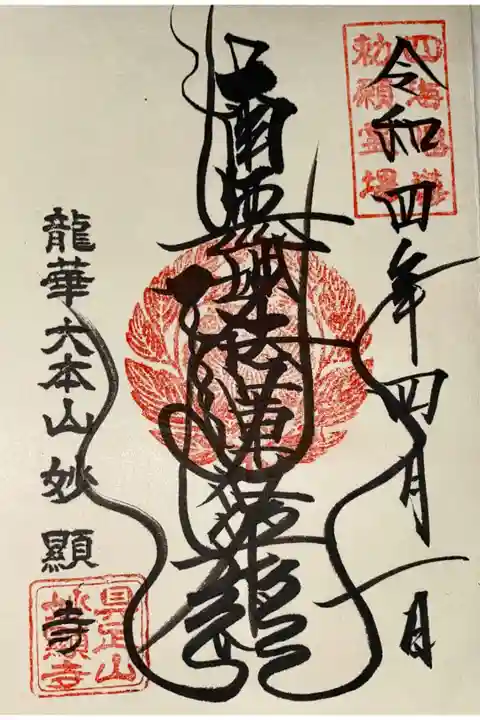 四海唱導
勅願霊場
令和四年四月一日
南無妙法蓮華経
龍華大本山妙顯寺
具足山
妙顯寺